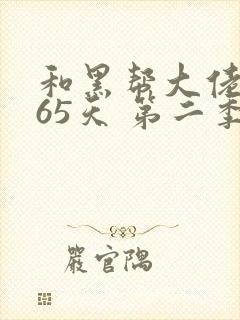 和黑帮大佬
65天 第二季
严官隅